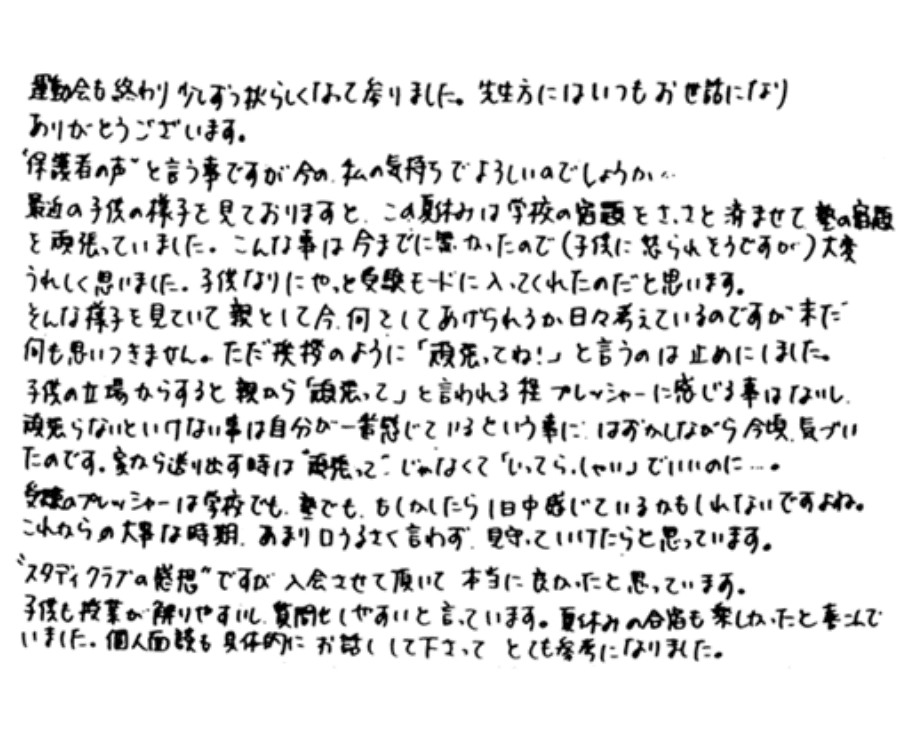 運動会も終わり少しずつ秋らしくなって参りました。先生方にはいつもお世話になり
ありがとうございます。
"保護者の声"と言う事ですが今の、私の気持ちでよろしいのでしょうか…
最近の子供の様子を見ておりますと、この夏休みは学校の宿題をさっさと済ませて塾の宿題
を頑張っていました。こんな事は今までに無かったので(子供に怒られそうですが)大変
うれしく思いました。子供なりにやっと受験モードに入ってくれたのだと思います。
そんな様子を見ていて親として今、何をしてあげられるか日々考えているのですが未だ
何も思いつきません。ただ挨拶のように「頑張ってね!」と言うのは止めにしました。
子供の立場からすると親から「頑張って」と言われる程プレッシャーに感じる事はないし、
頑張らないといけない事は自分が一番感じているという事に、はずかしながら今頃、気づい
たのです。家から送り出す時は"頑張って"じゃなくて「いってらっしゃい」でいいのに…。
受験のプレッシャーは学校でも、塾でも、もしかしたら1日中感じているかもしれないですよね。
これからの大事な時期、あまり口うるさく言わず、見守っていけたらと思っています。
"スタディクラブの感想"ですが、入会させて頂いて本当に良かったと思っています。
子供も授業が解りやすいし、質問もしやすいと言っています。夏休みの合宿も楽しかったと喜こんで
いました。個人面談も具体的にお話しして下さってとても参考になりました。